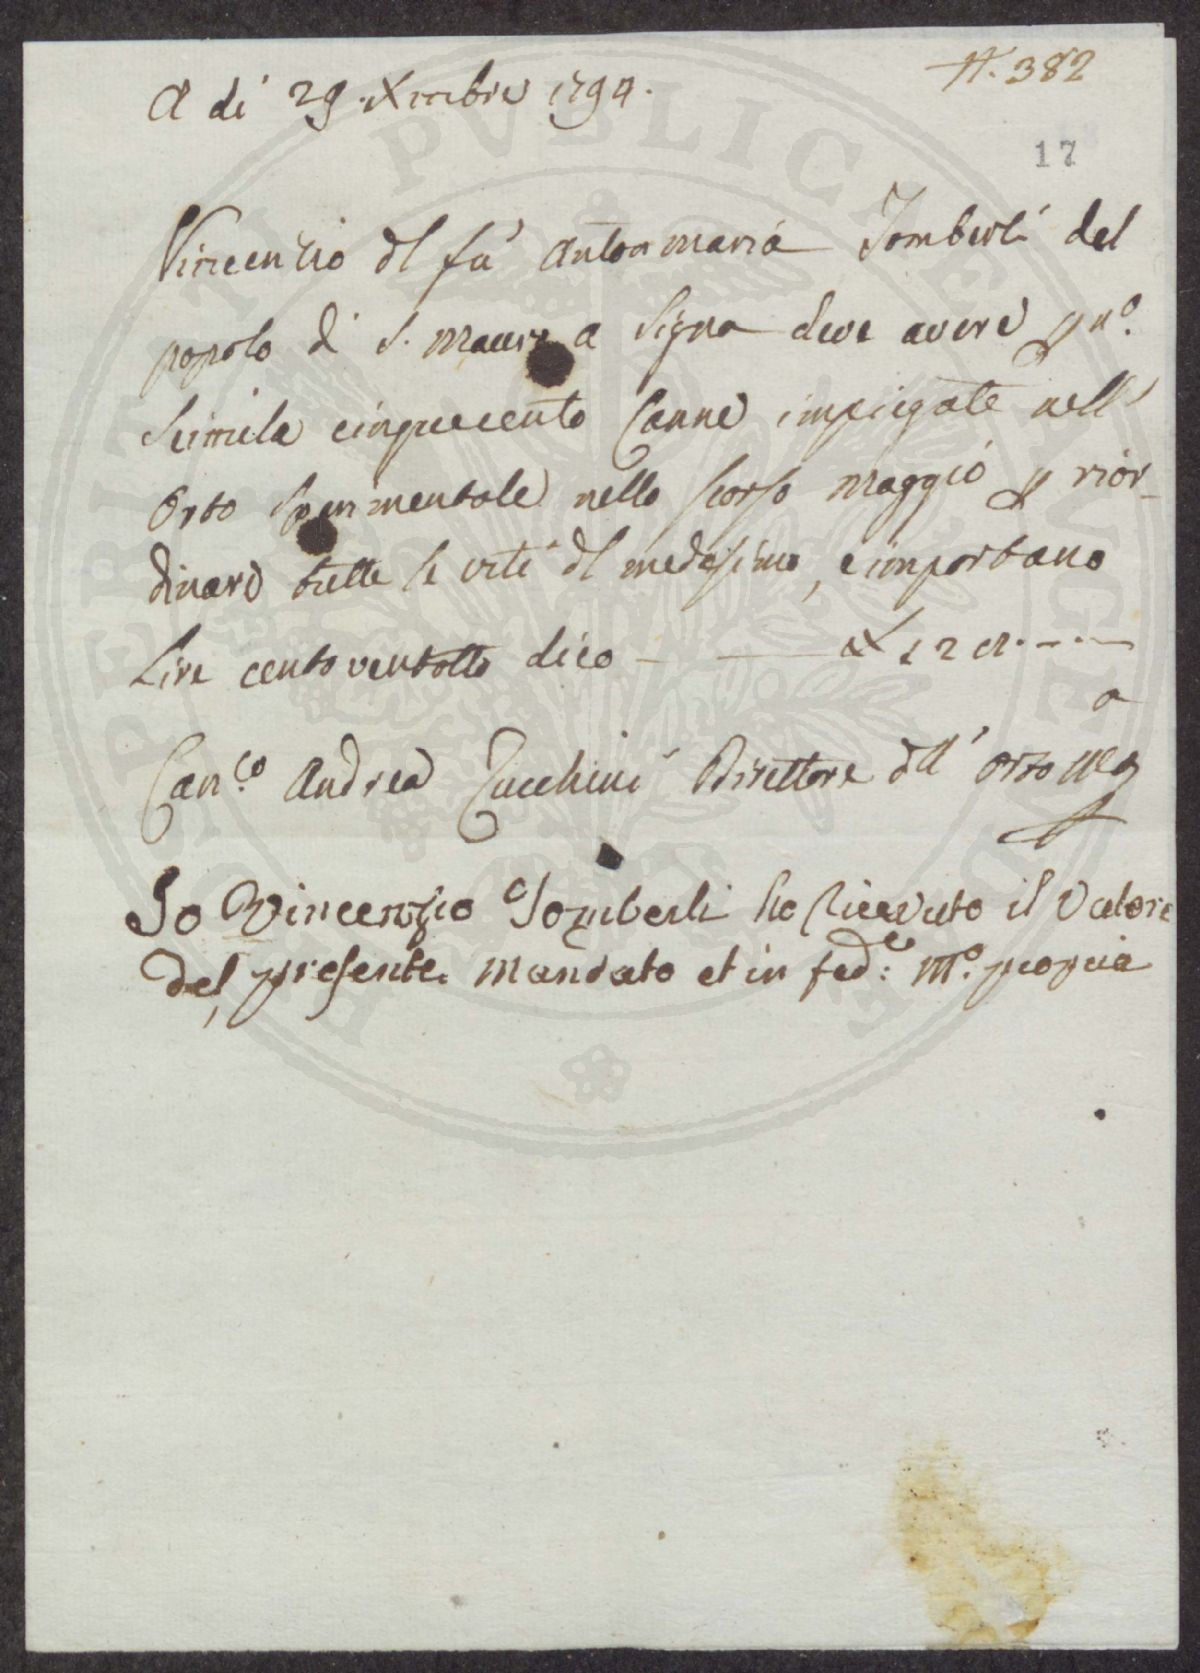 N. 382
A di 29. Xmbre 1794.
17
Vincenzio dl fu Antonmaria Tomberli del
popolo di S. Mauro a Signa deve avere p no.
Seimila cinquecento Canne impiegate nell'
Orto Sperimentale nello scorso Maggio p rior-
dinare tutte le viti dl medesimo, e importano
Lire cento ventotto dico — £ 128. — . —
Canco. Andrea Zucchini Direttore dll' Orto
Io Vincenzio Tomberli ho Riceuto il Valore
del presente Mandato et in fede: Mo. propia